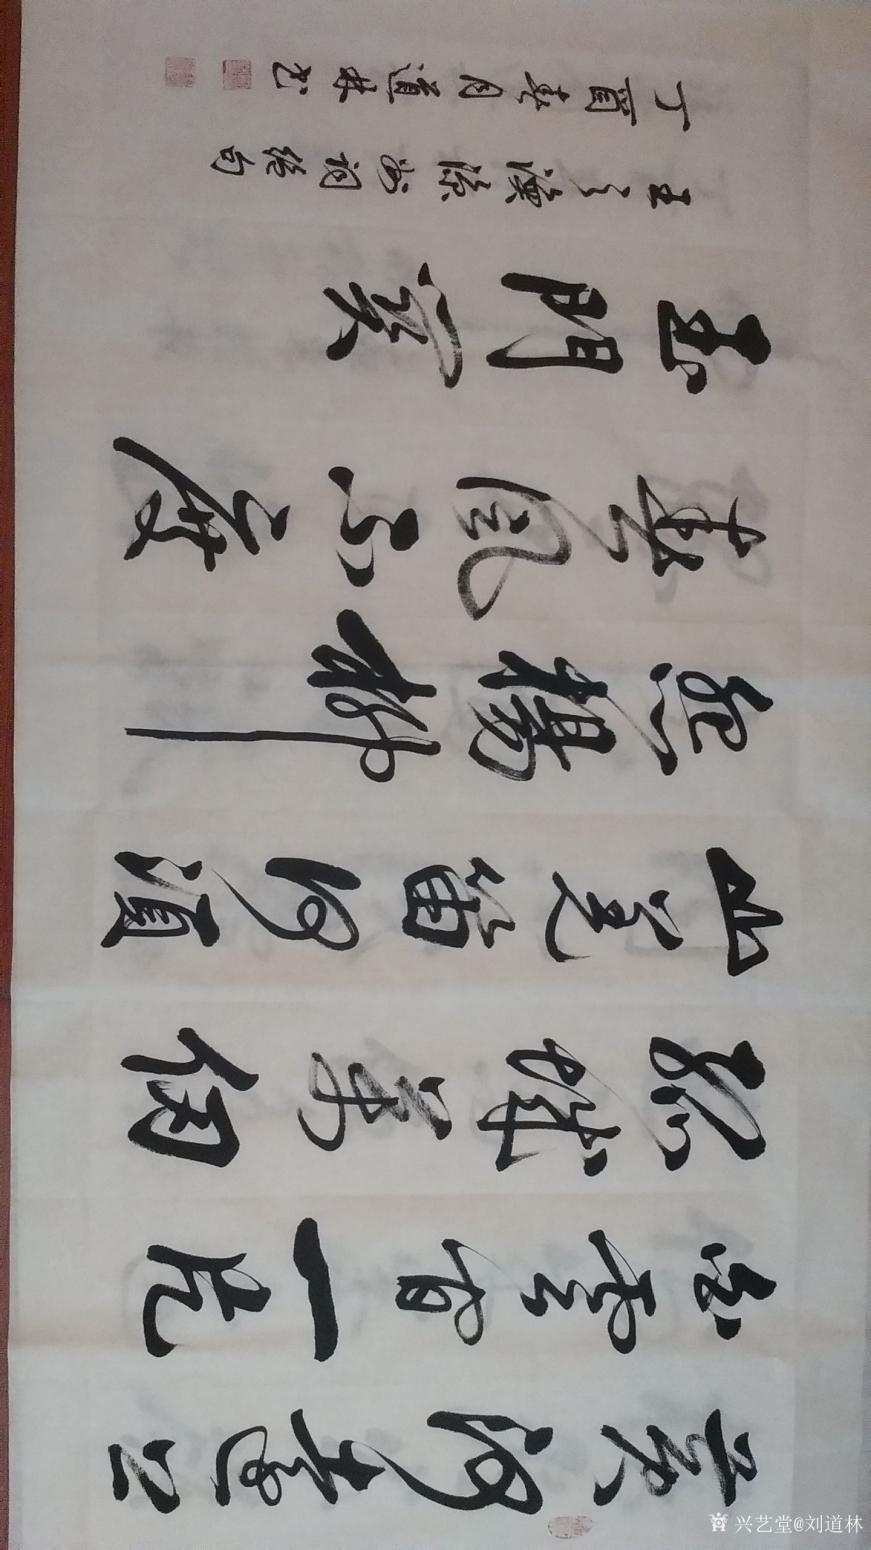 黄河遠上
白雲間一片
孤城萬仞
山羌笛何須
怨楊柳
春風不度
玉門關
王之渙涼州詞絶句
丁酉春月道林书
兴艺堂@刘道林